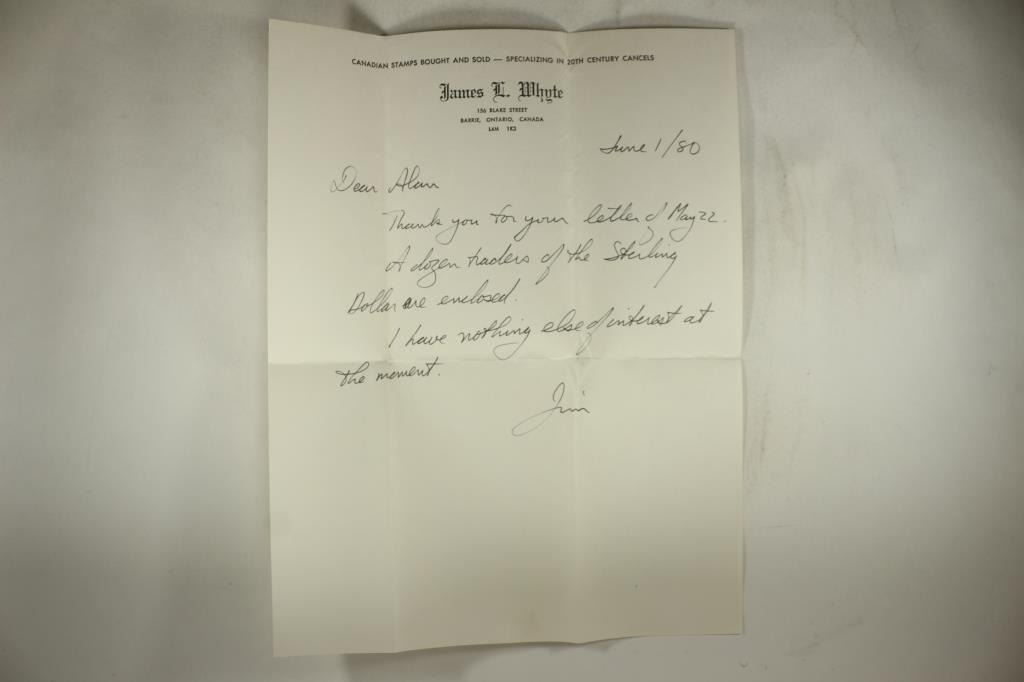 CANADIAN STAMPS BOUGHT AND SOLD — SPECIALIZING IN 20TH CENTURY CANCELS
James L. Whyte
156 BLAKE STREET
BARRIE, ONTARIO, CANADA
L4M 1K3
June 1/80
Dear Alan
Thank you for your letter of May 22.
A dozen traders of the Sterling
Dollar are enclosed.
I have nothing else of interest at
the moment.
Jim